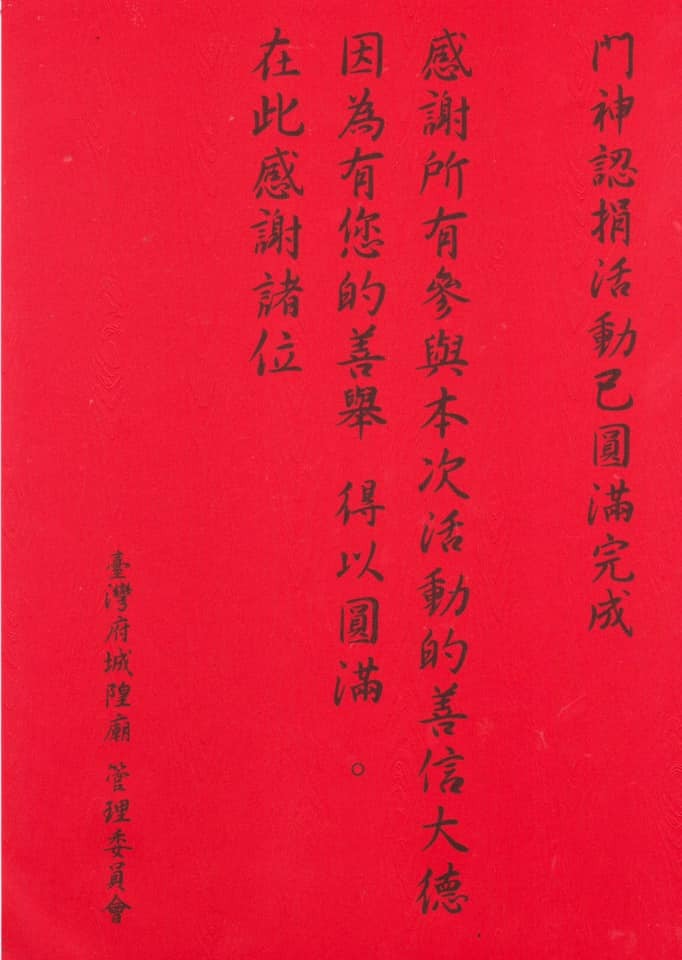 門神認捐活動已圓滿完成
感謝所有參與本次活動的善信大德
因為有您的善舉 得以圓滿。
在此感謝諸位
臺灣府城隍廟 管理委員會